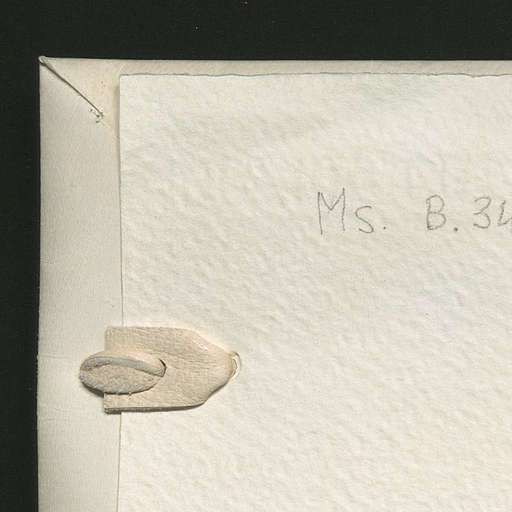 Ms. B. 34